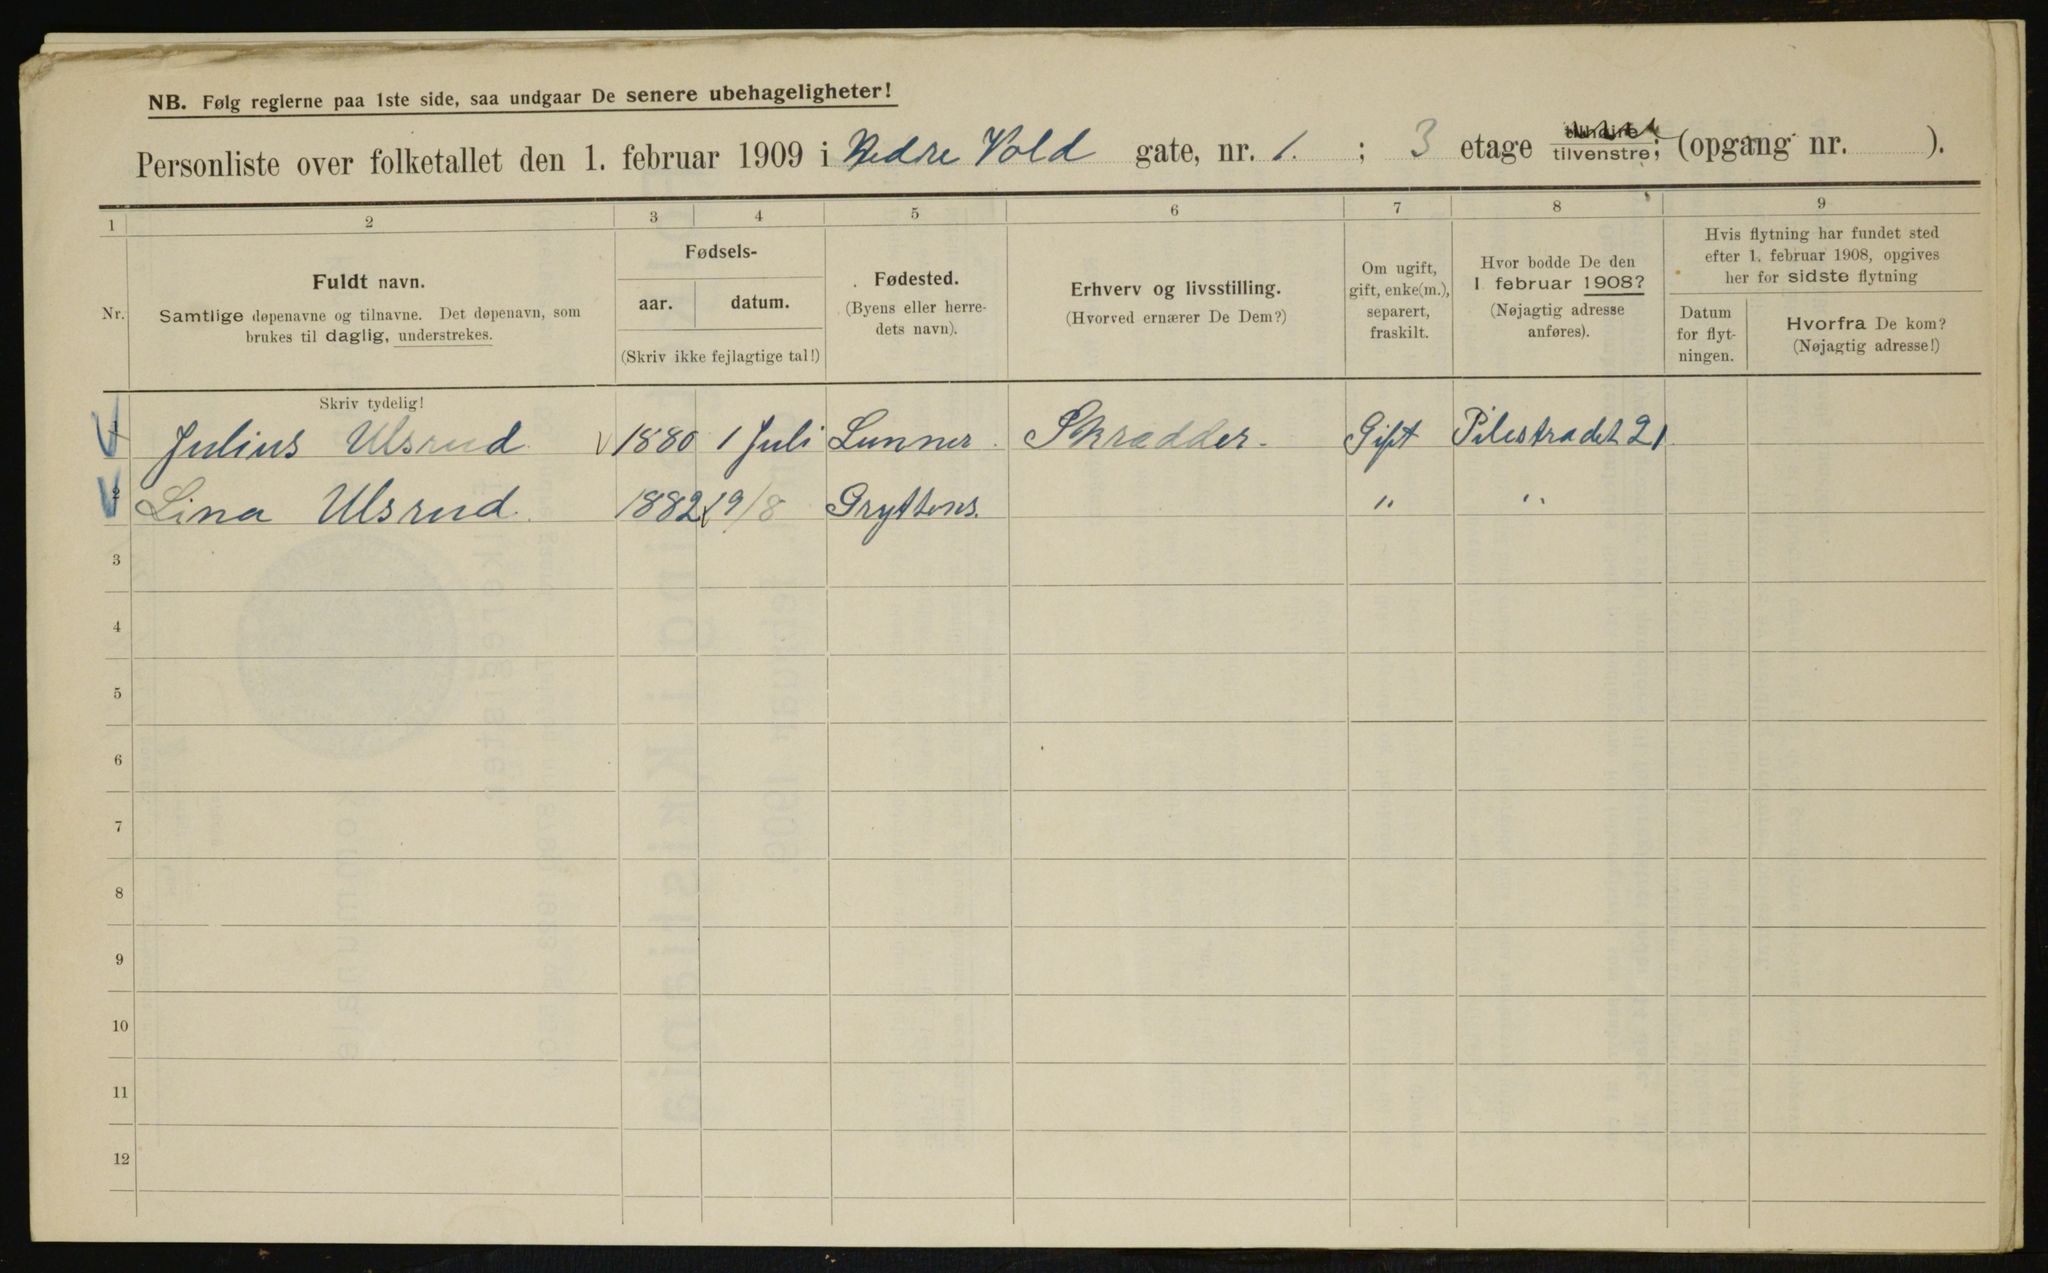 NB. Følg reglerne paa 1ste side, saa undgaar De senere ubehageligheter!
Personliste over folketallet den 1. februar 1909 i Nedre Vold gate, nr. 1. ; 3 etage tilhøire tilvenstre; (opgang nr. ).
1 2 3 4 5 6 7 8 9
Nr.
Fuldt navn.
Samtlige døpenavne og tilnavne. Det døpenavn, som
brukes til daglig, understrekes.
Fødsels-
aar. datum.
(Skriv ikke fejlagtige tal!)
Fødested.
(Byens eller herre-
dets navn).
Erhverv og livsstilling.
(Hvorved ernærer De Dem?)
Om ugift,
gift, enke(m.),
separert,
fraskilt.
Hvor bodde De den
1. februar 1908?
(Nøjagtig adresse
anføres).
Hvis flytning har fundet sted
efter 1. februar 1908, opgives
her for sidste flytning
Datum
for flyt-
ningen.
Hvorfra De kom?
(Nøjagtig adresse!)
Skriv tydelig!
1 Julius Ulsrud 1880 1 Juli Lunner. Skrædder. Gift Pilestradet 21
2 Lina Ulsrud. 1882 19/8 Gryttens. " "
3
4
5
6
7
8
9
10
11
12